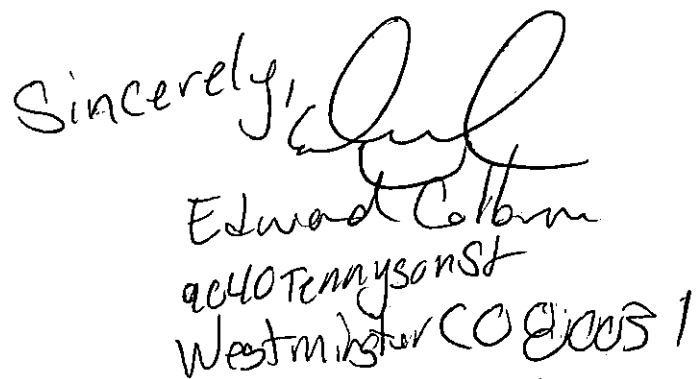 Sincerely,
Edward Colburn
9640 Tennyson St
Westminster CO 80031